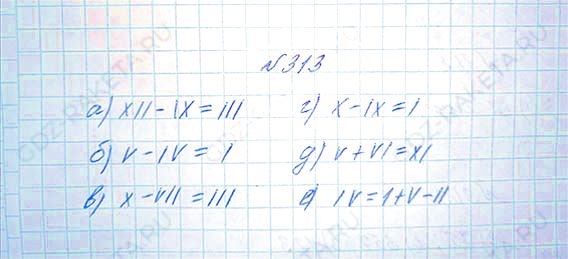 №313
а) XII - IX = III г) X - IX = I
б) V - IV = I д) V + VI = XI
в) X - VII = III е) IV = I + V - II
GDZ-RAKETA.RU